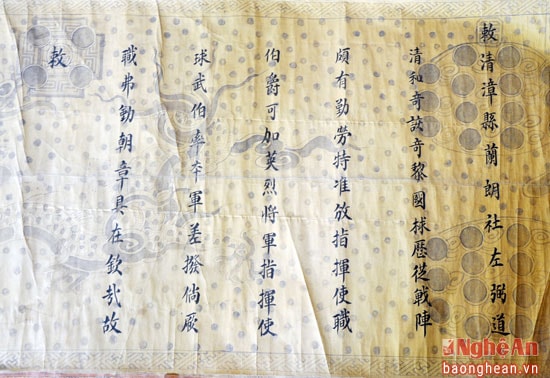 敕清漳縣蘭朗社左弼道
清和奇該奇黎國球歷從戰陣
頗有勤勞特准放指揮使職
伯爵可加英烈將軍指揮使
球武伯率本軍差撥倘厥
職弗勤朝章具在欽哉故
敕
NghệAn
baonghean.vn